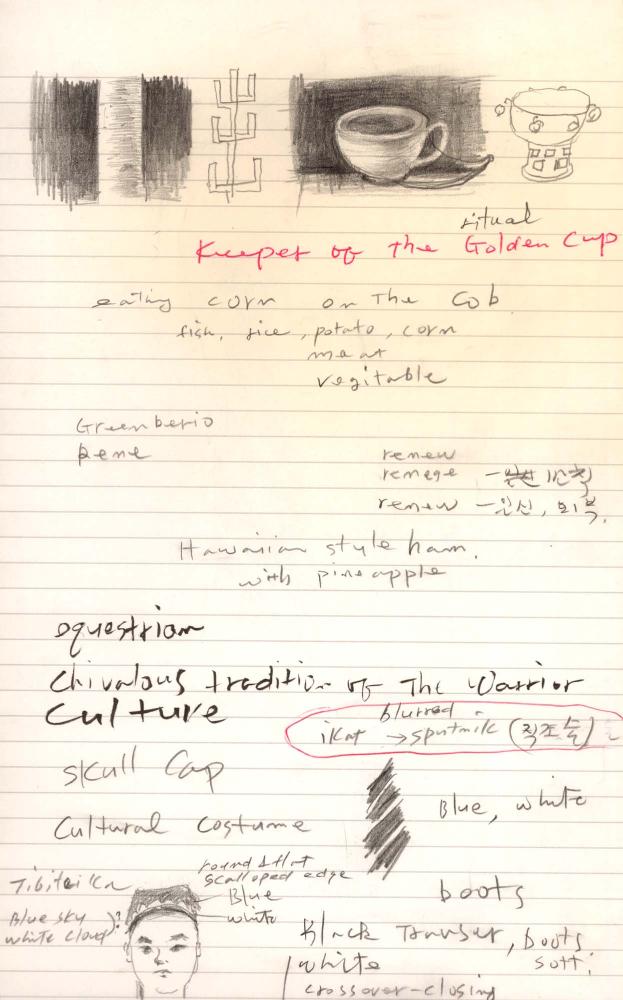 ritual
Keeper of the Golden Cup
eating corn on the Cob
fish, rice, potato, corn
meat
vegitable
Greenberio
pene
renew
renege
renew 일신, 회복,
Hawaiian style ham,
with pineapple
equestrian
Chivalous tradition of The Warrior
Culture
blurred
ikat → sputnik (직조술)
skull Cap
Blue, white
Cultural Costume
round & flat
scalloped edge
Tibiteika
Blue
white
Blue sky
white cloud)?
boots
Black Trouser, boots
white soft;
crossover-closing